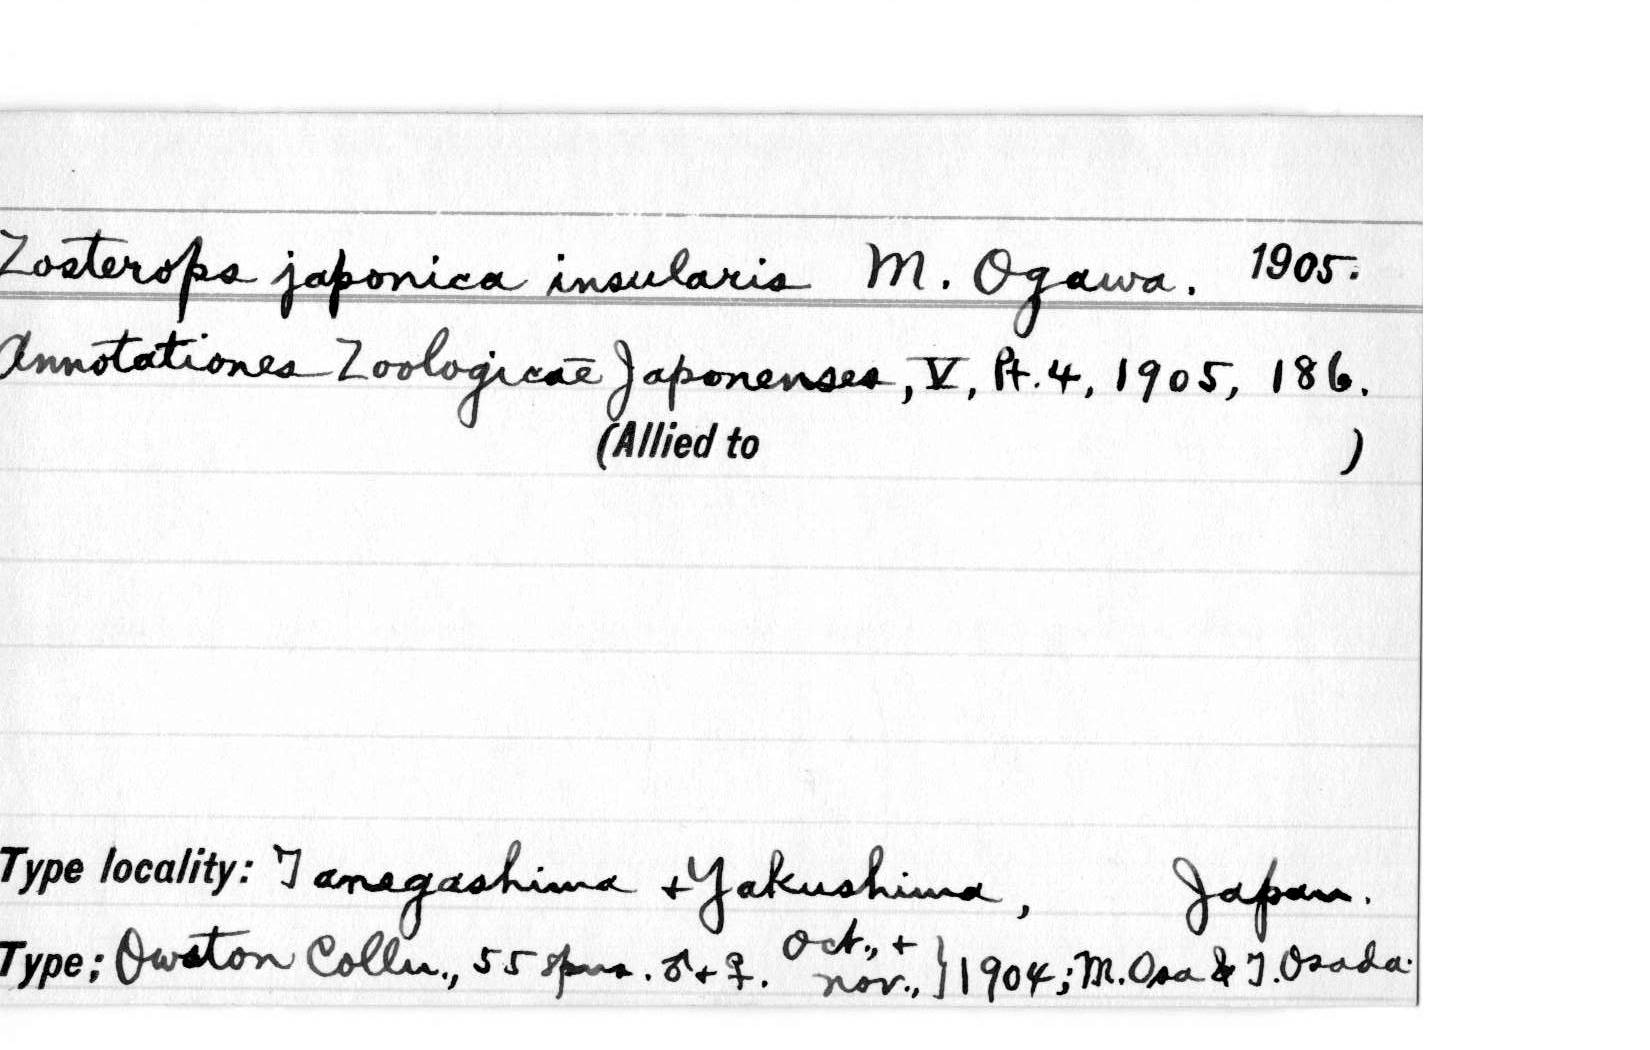 Zosterops japonica insularis M. Ogawa. 1905.
Annotationes Zoologicae Japonenses, V, Pt. 4, 1905, 186.
(Allied to )
Type locality: Tanegashima + Yakushima, Japan.
Type; Owston Colln., 55 spns. ♂ + ♀. Oct., + Nov., } 1904; M. Osa & T. Osada.